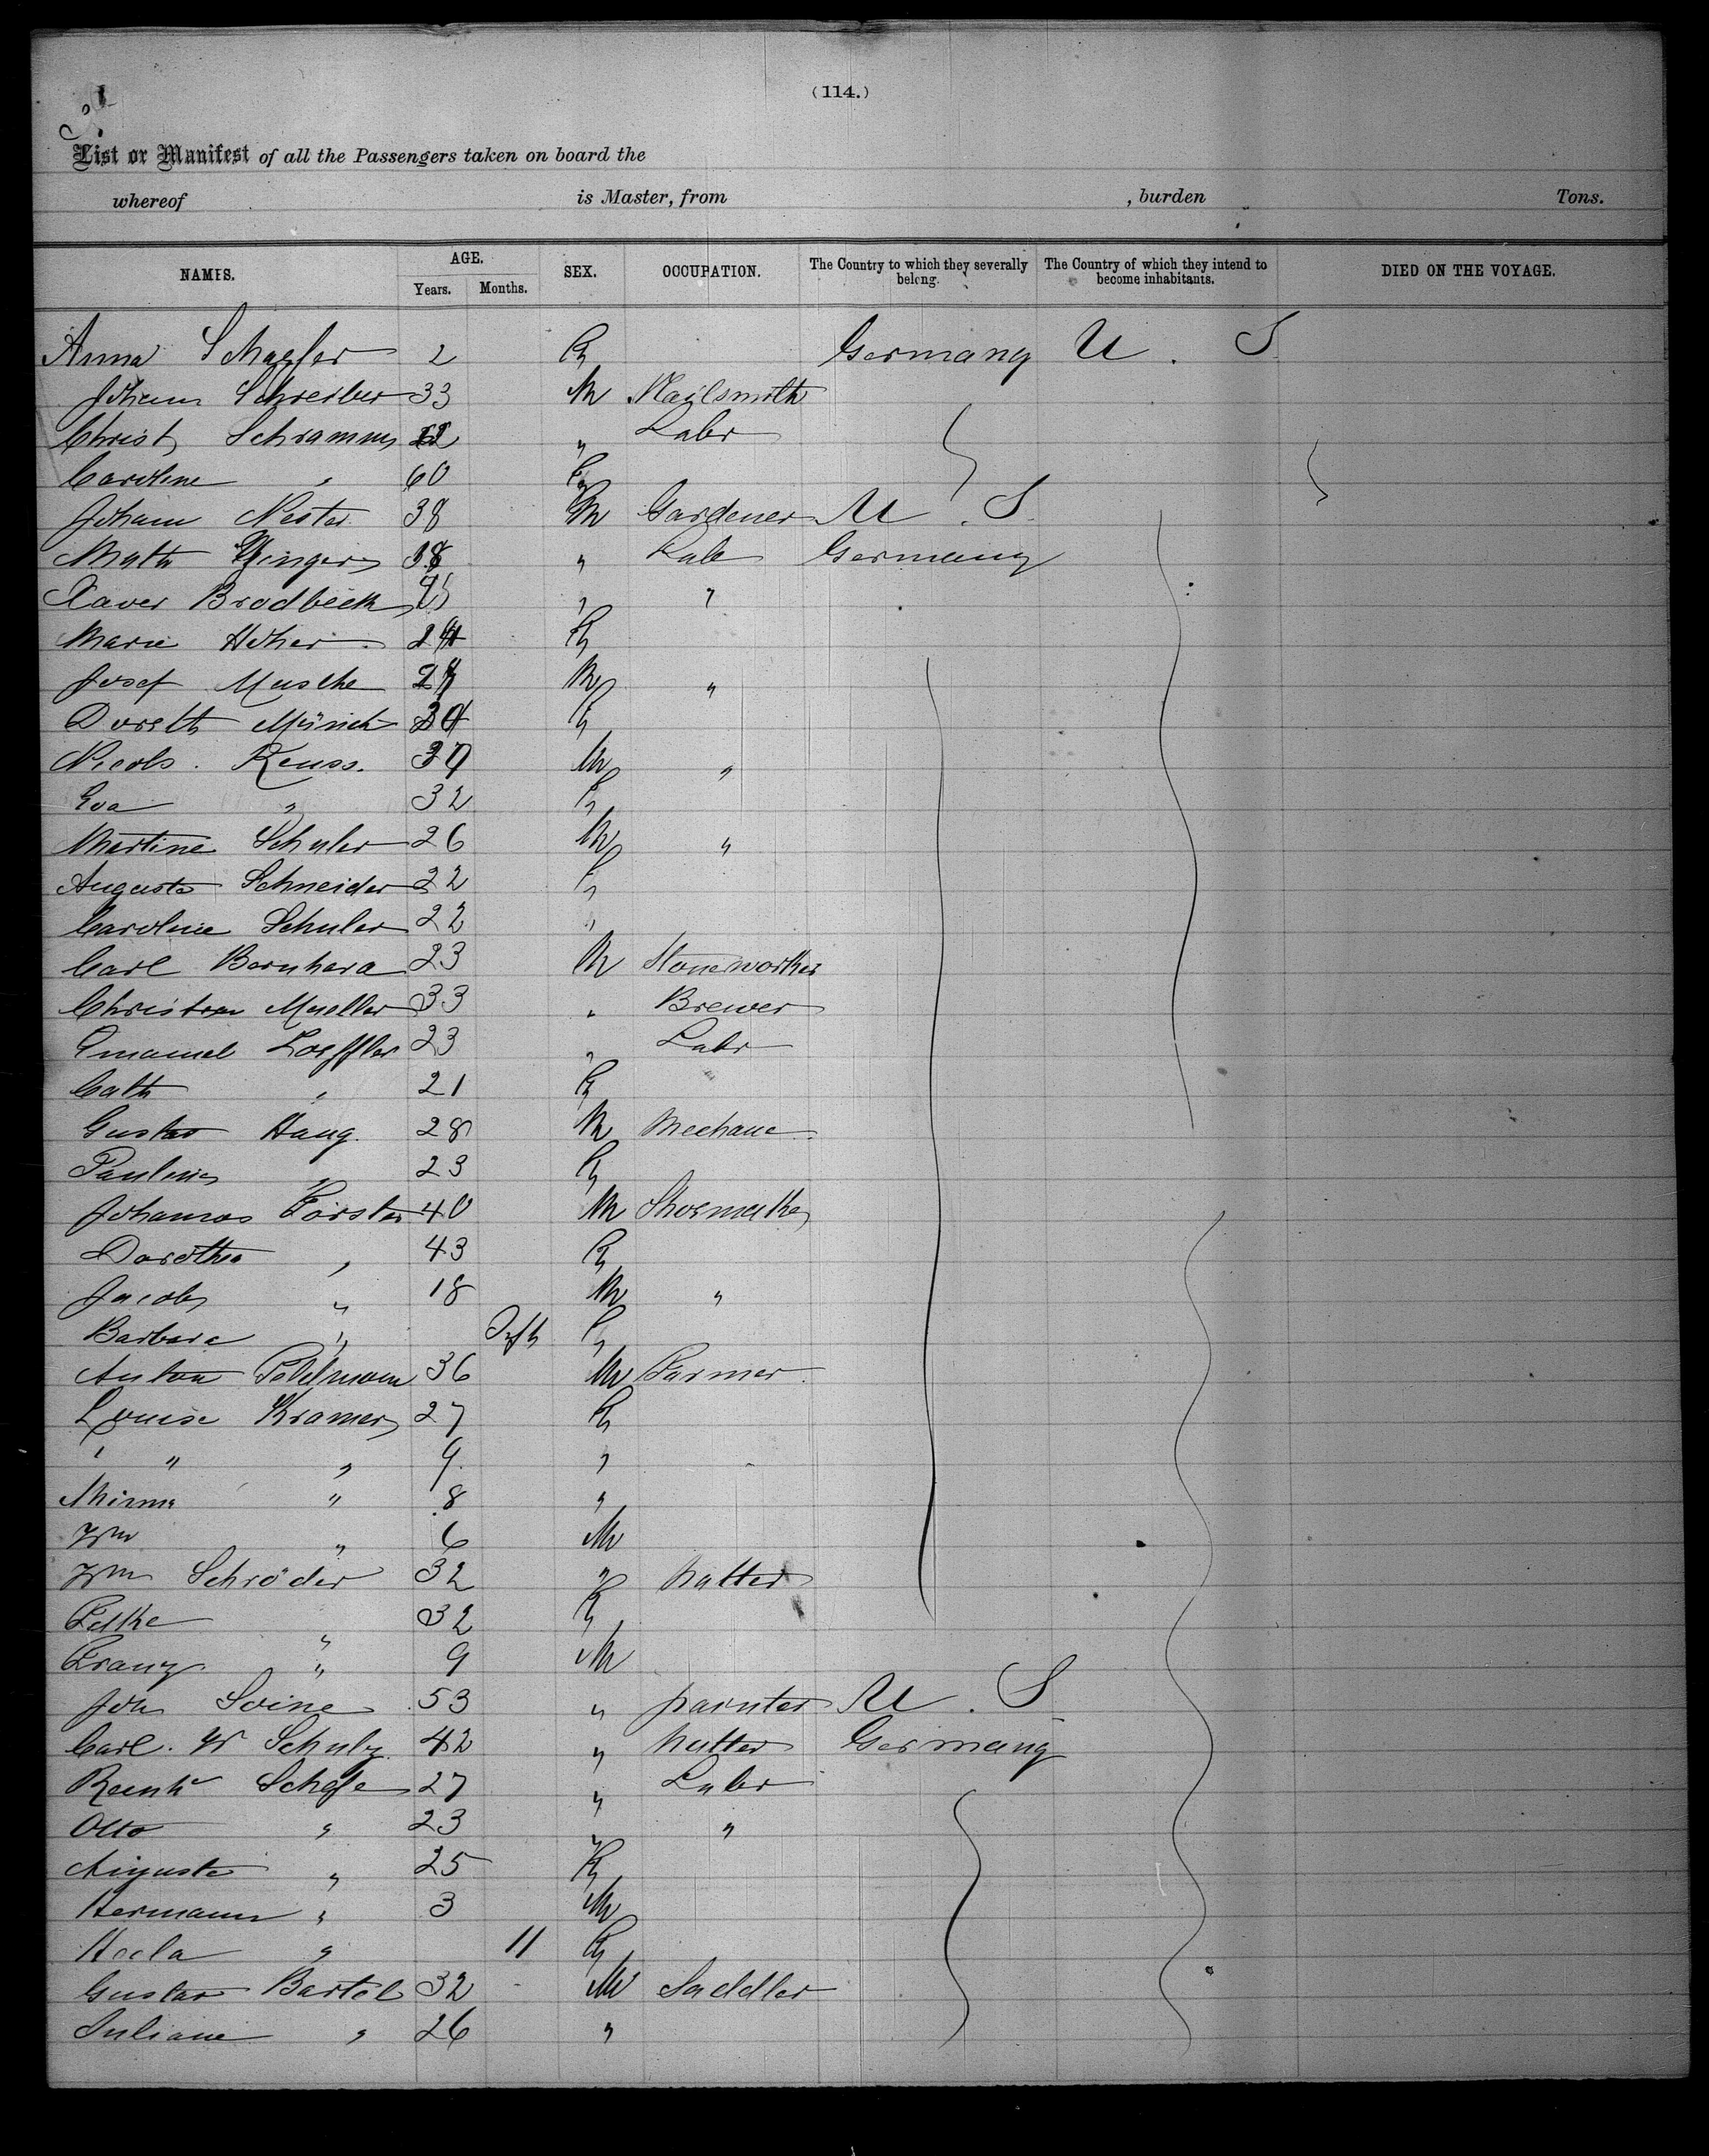 (114.)
List or Manifest of all the Passengers taken on board the
whereof is Master, from , burden Tons.
NAMES. AGE. Years. Months. SEX. OCCUPATION. The Country to which they severally belong. The Country of which they intend to become inhabitants. DIED ON THE VOYAGE.
Anna Schaefer 2 F Germany U. S
Johann Schreiber 33 M Nailsmith
Christ Schramm " Labr
Caroline " 60 F
Johann Nester 38 M Gardener U. S.
Math " Lab Germany
Xaver Brodbeck " "
Marie 24 F
Josef Musche M "
Doroth Münich 34 F
Nicols. Reuss. M "
Eva " 32 F
Martine Schuler 26 M "
Auguste Schneider 22 F
Caroline Schuler 22 "
Carl Bernhara 23 M Stoneworker
Christian Mueller 33 " Brewer
Emanuel Loeffler 23 " Labr
Cath " 21 F
Gustav Haug. 28 M Mechanc
Pauline " 23 F
Johannes Förster 40 M Shoemaker
Dorothea " 43 F
Jacob " 18 M "
Barbara " Inft F
Anton 36 M Farmer
Louise Kramer 27 F
" " " 9 "
Minna " 8 "
Wm " 6 M
Wm Schröder 32 " hatter
" 32 F
Franz " 9 M
Joh Soine 53 " painter U. S
Carl. W Schulz 42 " hatter Germany
Reinhd 27 " Labr
Otto " 23 " "
Auguste " 25 F
Hermann " 3 M
Hecla " 11 F
Gustav Bartel 32 M Saddler
Juliane " 26 "